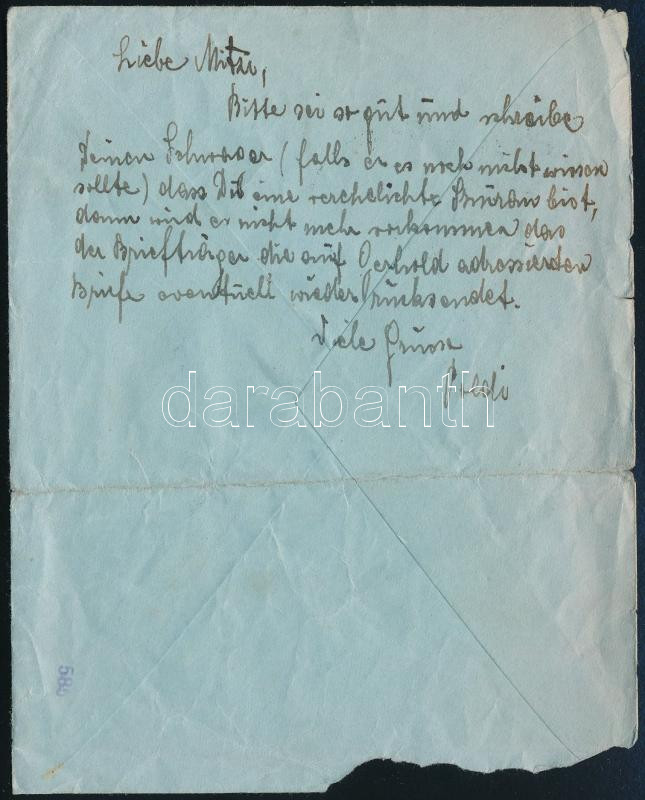 Liebe Mitzi,
Bitte sei so gut und schreibe
Deinen Schwager (falls er es noch nicht wissen
sollte) dass Du eine verehelichte bist,
dann wird er nicht mehr vorkommen das
der Briefträger die auf adressierten
Briefe eventuell wieder rücksendet.
Viele Grüsse
Poldi
darabanth
58